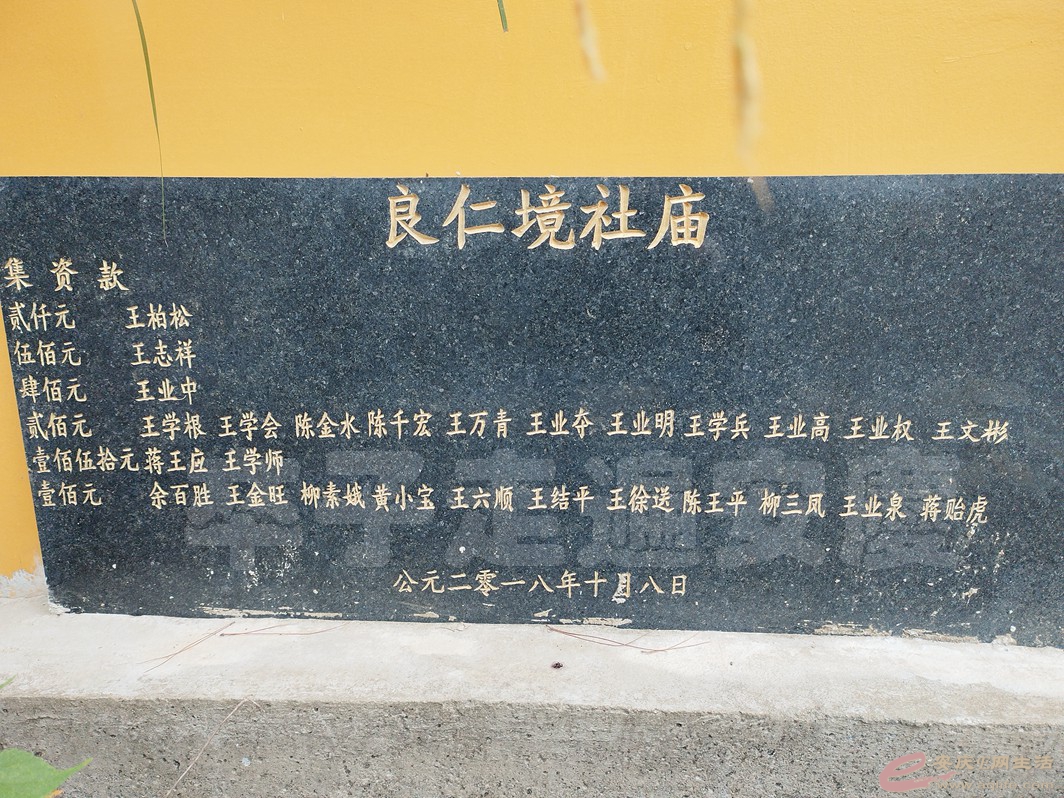 良仁境社庙
集资款
贰仟元 王柏松
伍佰元 王志祥
肆佰元 王业中
贰佰元 王学根 王学会 陈金水 陈千宏 王万青 王业夺 王业明 王学兵 王业高 王业权 王文彬
壹佰伍拾元 蒋王应 王学师
壹佰元 余百胜 王金旺 柳素娥 黄小宝 王六顺 王结平 王徐送 陈王平 柳三凤 王业泉 蒋贻虎
公元二零一八年十月八日
走遍安庆